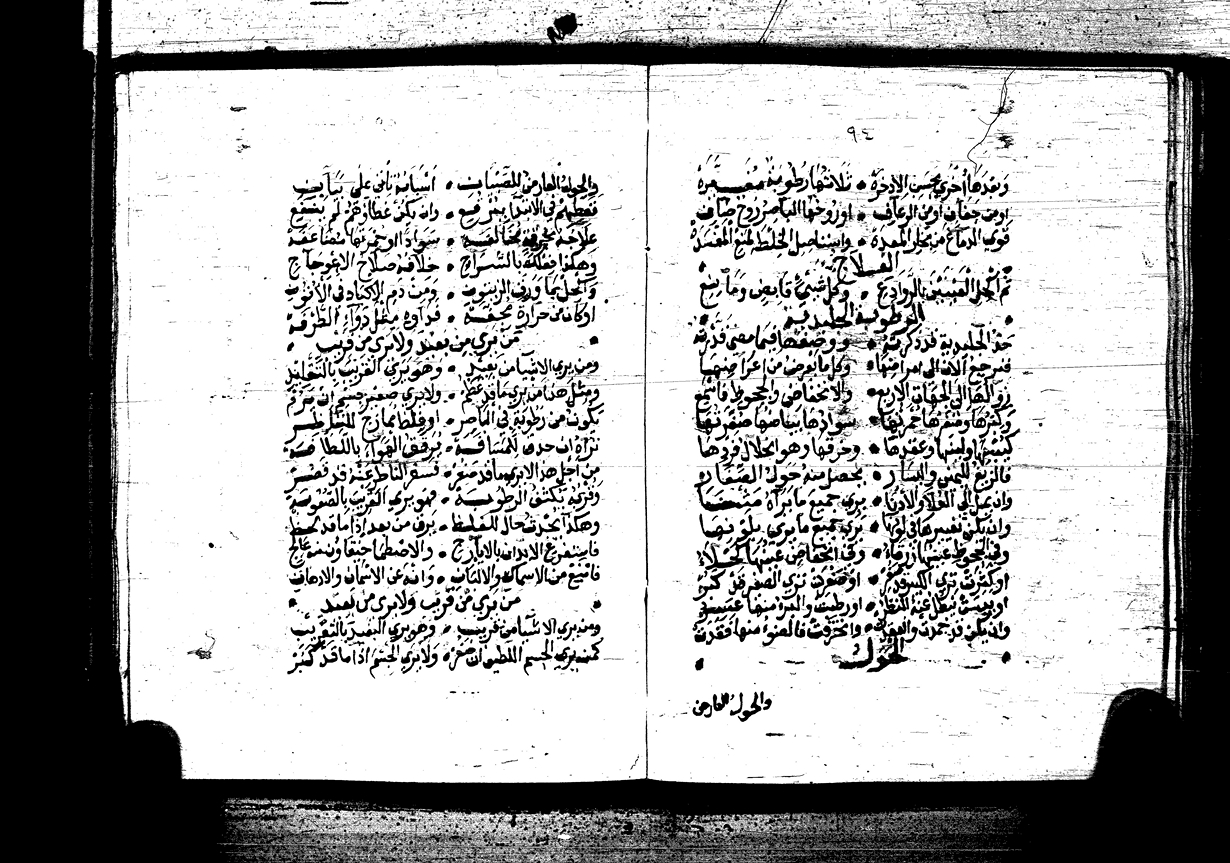 ٩٤
وبعدها أخرى بحسن الادخرة • ثلاثتها رطوبة
اومن جفاف اومن الرعاف • اوزوحها الباصر روح صاف
قوي الدماغ من بخار المعدة • واستاصل الخلط لمنع المفسدة
العلاج
ثم اكحل العينين بالروادع • وكل شيء قابض ومانع
الرطوبة الجليدية
حد الجليدية قد ذكرته • ووصفها فيما مضى قدمته
فنرجع الان الى امراضها • وكل ما يعرض من اعراضها
زوالها الى الجهات الاربع • والانخفاض والجحوظ فاسمع
وكبرها وصغرها حمرتها • سوادها بياضها صفرتها
يبسها ولينها وعقدها • وخرقها وهو انحلال فردها
فالزيغ لليمين واليسار • يحصل منه حول الصغار
وان يمل الى العلا والادنا • يرى جميع ما يراه مثنى
وان يكن تغييرها في لونها • يرى جميع ما يرى بلونها
وفي الجحوظ عينها زرقاء • وفي انخفاض عينها كحلاء
او كبرت ترى الكبير قد صغر • او صغرت ترى الصغير قد كبر
او يبست يبطل عنه النظر • او رطبت
وان يكن قد جمدت • وانخرقت فالضوء منها فقدت
الحول
والحول العارض
والحول العارض للصبيان • اسبابه تأتي على بيان
فبعضهم في الابتدا يبرقع • وان يكن عطاؤهم لم ينفع
علاجه بخرقة مخالفة • سوادا او حمرتها مضاعفة
وهكذا مقلته بالسراج • خلافه صلاح الاعوجاج
واكحل بما ورق الزيتون • ومن دم الاكباد في الانوف
او كان من حرارة مجففة • فداوه مثل دواء الطرفة
من يرى من بعيد ولا يرى من قريب
ومن يرى الاشيا من بعيد • وهو يرى القريب بالتفنيد
ومثل هذا من يرى ما قد عظم • ولا يرى صغير جسم ان حرم
يكون من رطوبة في الباصر • او غلط ممازج للناظر
تراه ان حدق للمسافة • يرقق الهواء باللطافة
من اجل هذا لا يرى ما قد صغر • فسر الناظر عنه قد قصر
وتره تكثف الرطوبة • فهو يرى القريب بالصعوبة
وهكذا يحدث حال للغليظ • يرق من بعد اذا ما قد لحظ
فاستفرغ الابدان بالايارج • والاصطماخيقا ونفع عالج
فامنع من الاسماك والالبان • وانه عن الاسمان والادهان
من يرى من قريب ولا يرى من بعيد
ومن يرى الاشيا من قريب • وهو يرى البعيد بالتقريب
كمن يرى الجسم اللطيف ان صغر • ولا يرى الجسم اذا ما قد كبر